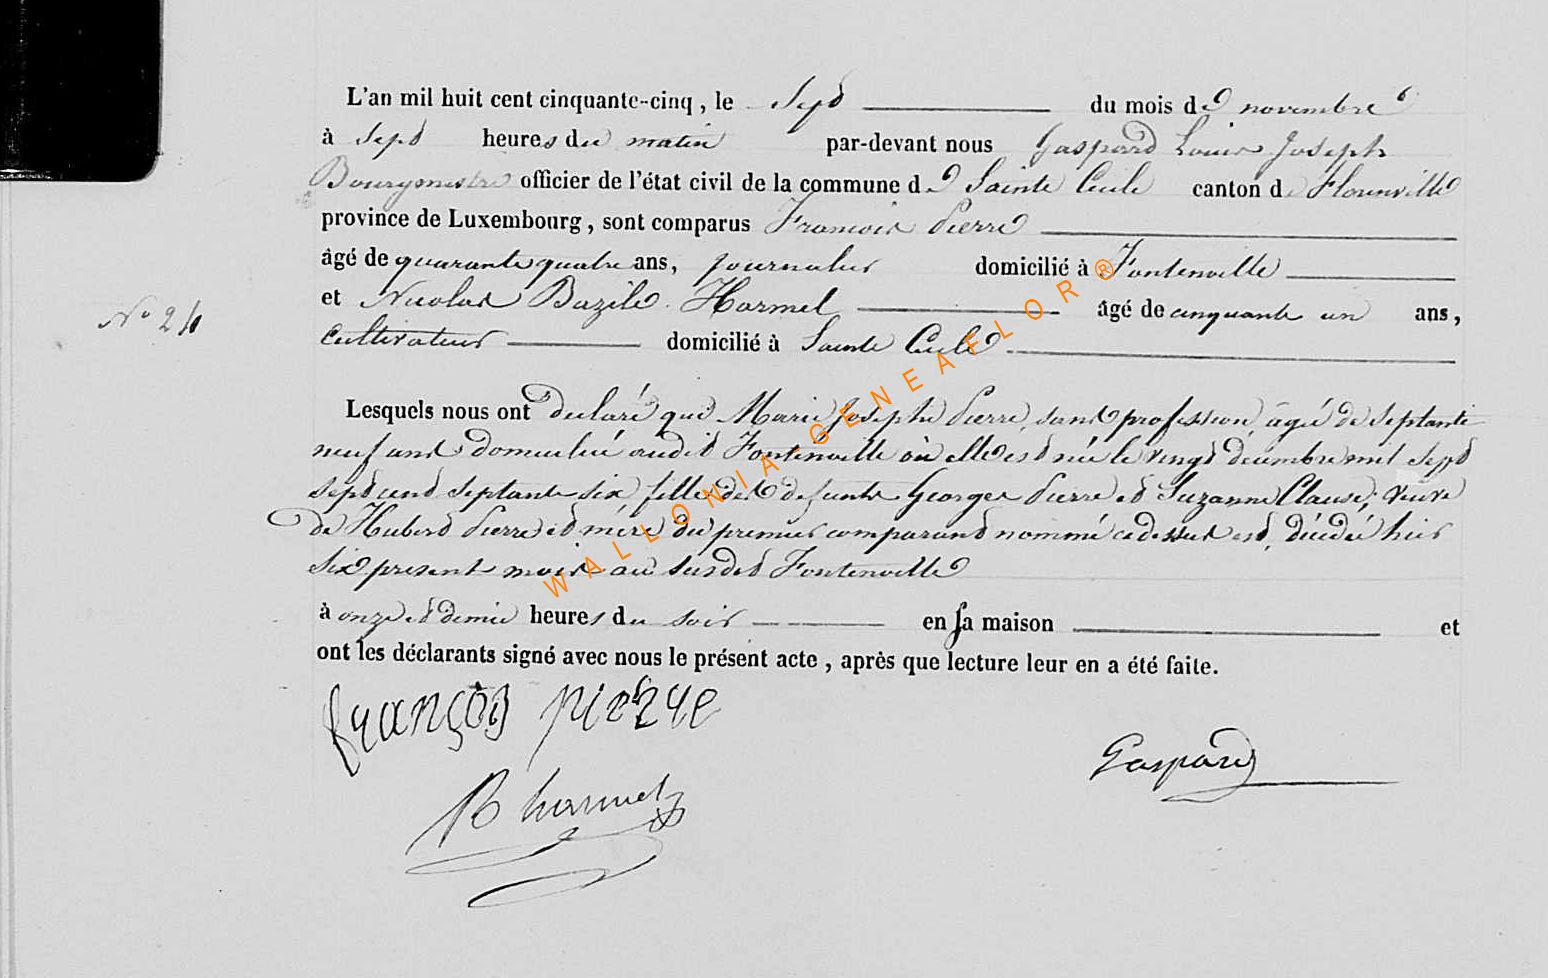 L'an mil huit cent cinquante-cinq, le sept du mois de novembre
à sept heures du matin par-devant nous Gaspard Louis Joseph
Bourgmestre officier de l'état civil de la commune de Sainte Cecile canton de Florenville
province de Luxembourg, sont comparus Francois Pierre
âgé de quarante quatre ans, journalier domicilié à Fontenoille
et Nicolas Bazile Harmel âgé de cinquante un ans,
N° 24
cultivateur domicilié à Sainte Cecile
Lesquels nous ont déclaré que Marie Josephe Pierre, sans profession âgée de septante
neuf ans domiciliée audit Fontenoille où elle est née le vingt décembre mil sept
sept cent septante six fille des defunts Georges Pierre et Suzanne Clause, veuve
de Hubert Pierre et mère du premier comparant nommé cadessus est décédée hier
six présent mois au susdit Fontenoille
à onze et demie heures du soir en sa maison et
ont les déclarants signé avec nous le présent acte, après que lecture leur en a été faite.
françois pierre
Gaspard
B harmel
WALLONIA-GENEAELOR®